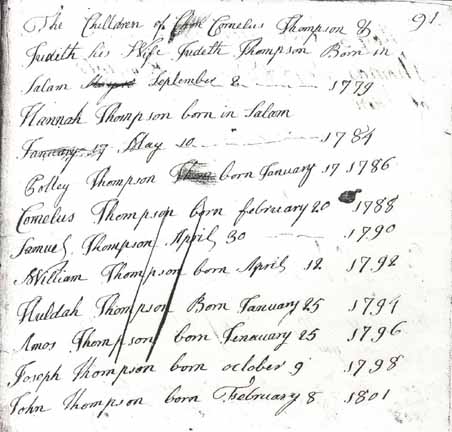 The Children of Cornelus Thompson & 91
Judith his Wife Judith Thompson Born in
Salam September 2 1779
Hannah Thompson born in Salam
January 17 May 10 1784
Polley Thompson born January 17 1786
Cornelus Thompson born february 20 1788
Samuel Thompson April 30 1790
William Thompson born April 12 1792
Huldah Thompson Born January 25 1794
Amos Thompson born Jenauary 25 1796
Joseph Thompson born october 9 1798
John Thompson born February 8 1801